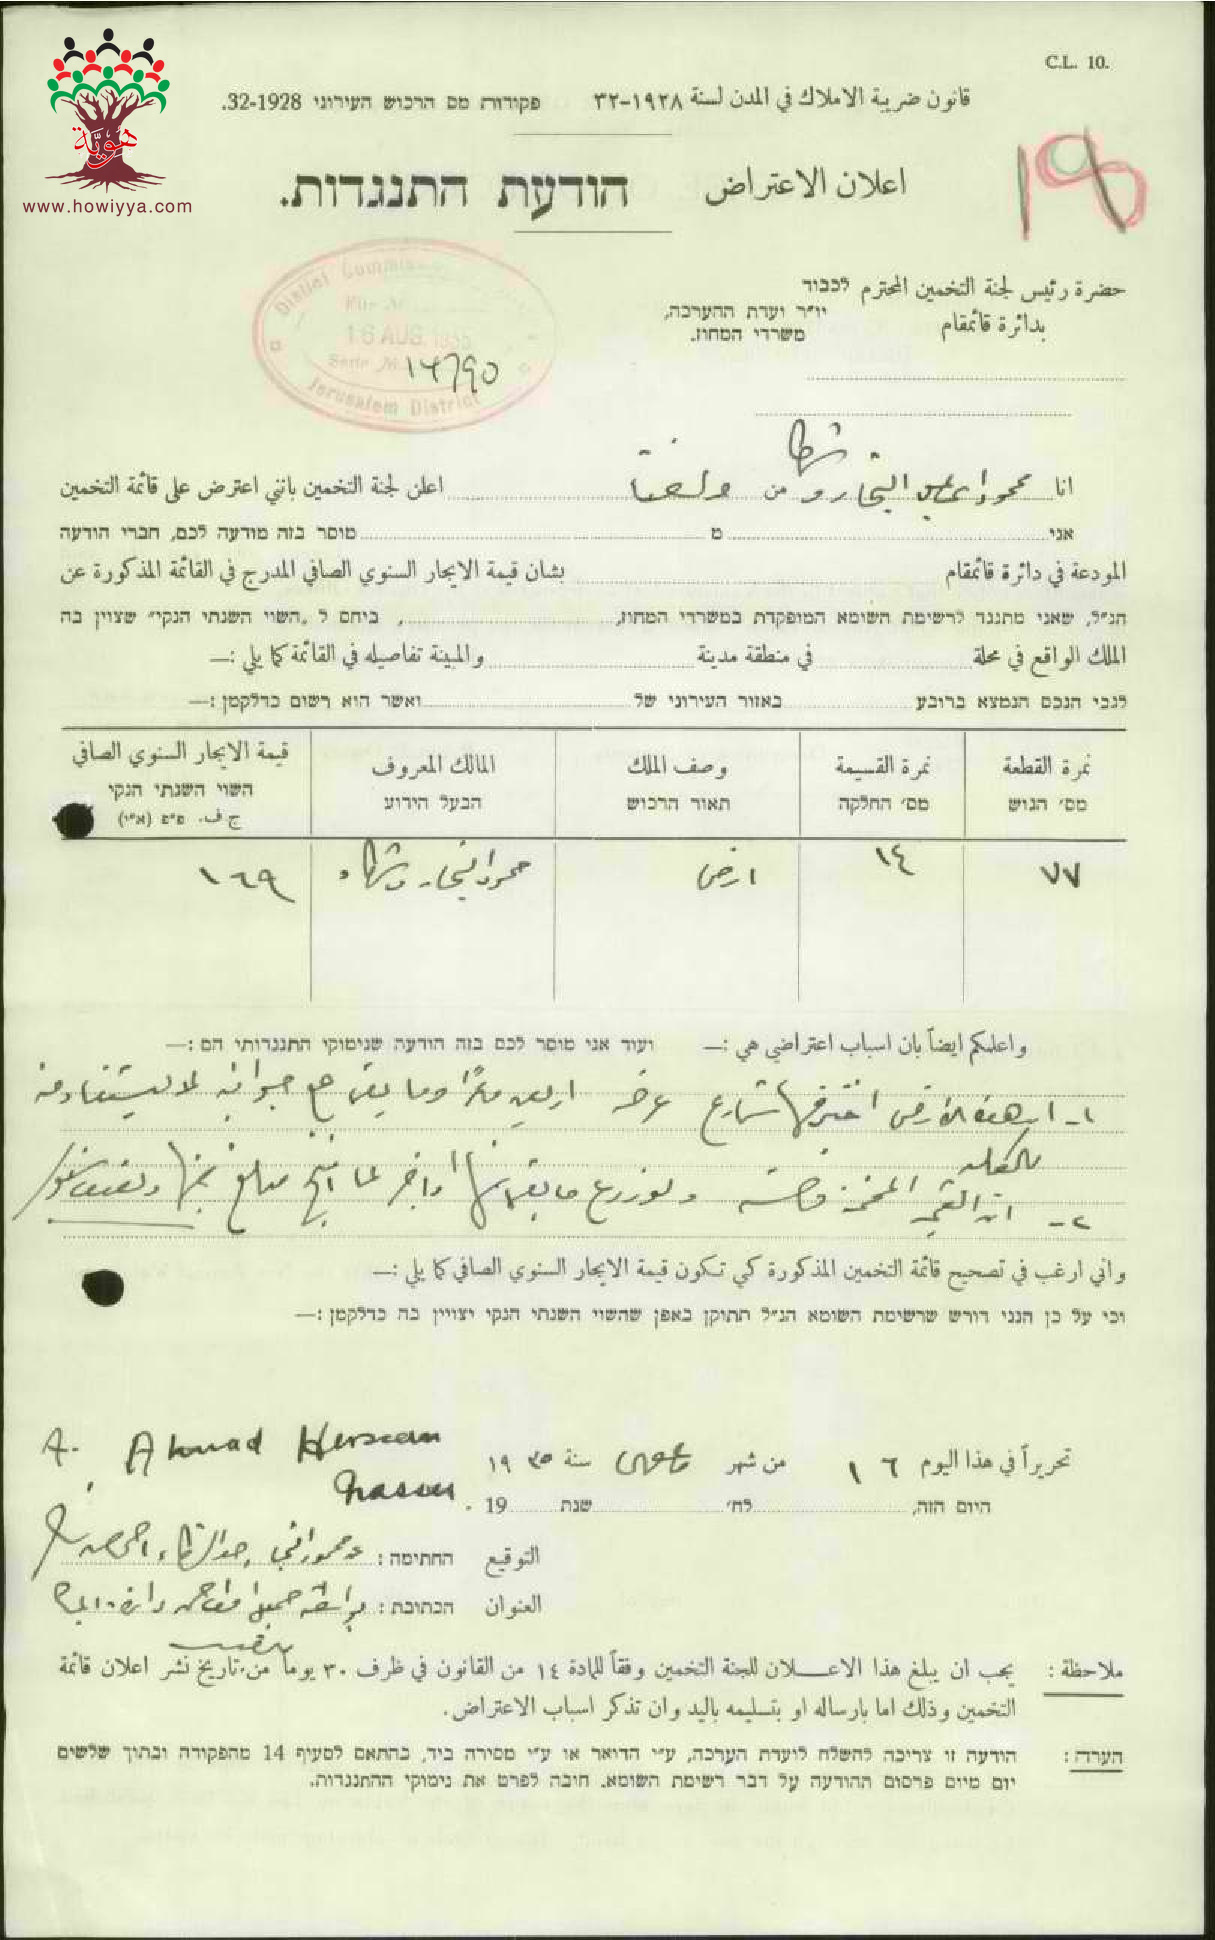 هوية
www.howiyya.com
C.L. 10.
قانون ضريبة الاملاك في المدن لسنة ١٩٢٨-٣٢
פקודות מס הרכוש העירוני 1928-32.
اعلان الاعتراض
הודעת התנגדות.
18
District Commis
16 AUG. 1935
Serie No.
14790
Jerusalem District
حضرة رئيس لجنة التخمين المحترم
לכבוד
بدائرة قائمقام
יו״ר ועדת ההערכה,
משרדי המחוז.
انا محمود اسماعيل النجار و من لفتا اعلن لجنة التخمين بانني اعترض على قائمة التخمين
אני מ מוסר בזה מודעה לכם, חברי הודעה
المودعة في دائرة قائمقام بشان قيمة الايجار السنوي الصافي المدرج في القائمة المذكورة عن
הנ״ל, שאני מתנגד לרשימת השומא המופקדת במשרדי המחוז, , ביחס ל „השוי השנתי הנקי״ שצוין בה
الملك الواقع في محلة في منطقة مدينة والمبينة تفاصيله في القائمة كما يلي :—
לגבי הנכס הנמצא ברובע באזור העירוני של ואשר הוא רשום כדלקמן :—
نمرة القطعة
מס׳ הגוש
نمرة القسيمة
מס׳ החלקה
وصف الملك
תאור הרכוש
المالك المعروف
הבעל הידוע
قيمة الايجار السنوي الصافي
השוי השנתי הנקי
ج.ف. פ״פ (א״י)
٧٧
١٤
ارض
محمود النجار وشركاه
١٦٩
واعلمكم ايضاً بان اسباب اعتراضي هي :— ועוד אני מוסר לכם בזה הודעה שנימוקי התנגדותי הם :—
١- ان هذه الارض اخترقها شارع عرضه اربعين مترا وما بقي
٢- ان القيمة المخمنة
واني ارغب في تصحيح قائمة التخمين المذكورة كي تكون قيمة الايجار السنوي الصافي كما يلي :—
וכי על כן הנני דורש שרשימת השומא הנ״ל תתוקן באפן שהשוי השנתי הנקי יצויין בה כדלקמן :—
A. Ahmad Hersean
Nasser
تحريراً في هذا اليوم ١٦ من شهر سنة ١٩٣٥
היום הזה, לח׳ שנת 19 .
التوقيع החתימה :
العنوان הכתובת :
ملاحظة : يجب ان يبلغ هذا الاعـــلان للجنة التخمين وفقاً للمادة ١٤ من القانون في ظرف ٣٠ يوماً من تاريخ نشر اعلان قائمة
التخمين وذلك اما بارساله او بتسليمه باليد وان تذكر اسباب الاعتراض.
הערה : הודעה זו צריכה להשלח לועדת הערכה, ע״י הדואר או ע״י מסירה ביד, בהתאם לסעיף 14 מהפקודה ובתוך שלשים
יום מיום פרסום ההודעה על דבר רשימת השומא. חובה לפרט את נימוקי ההתנגדות.